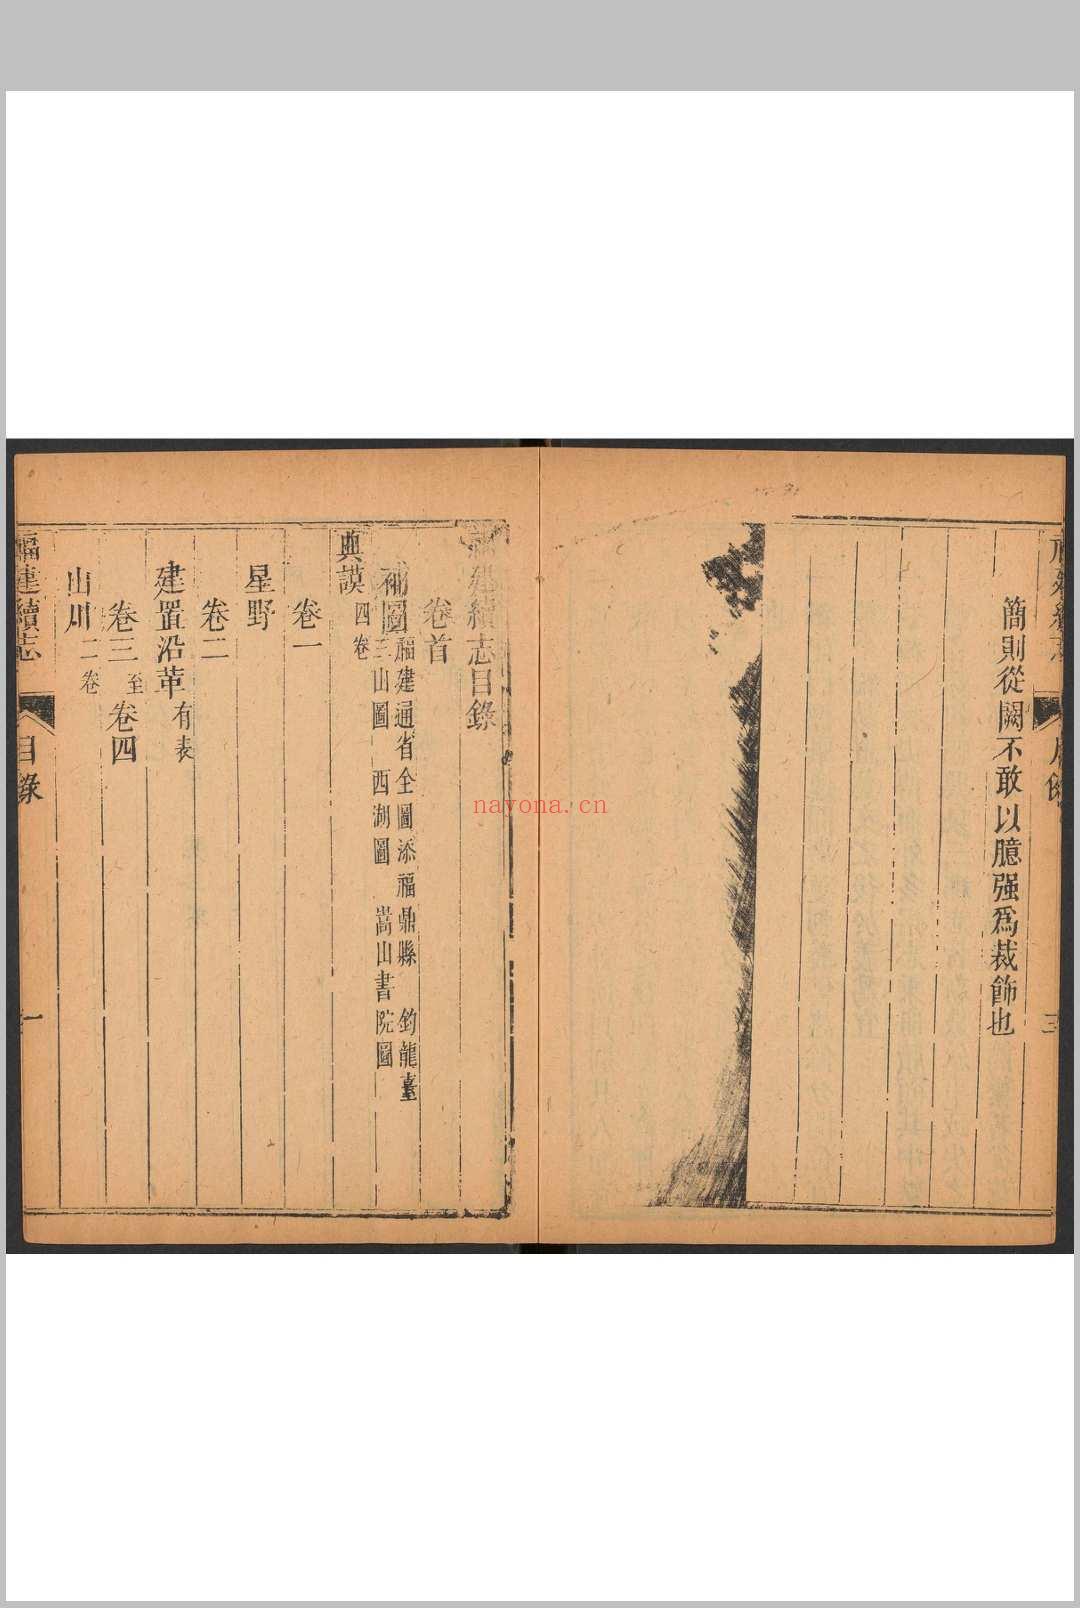 簡則從闕不敢以臆强爲裁飾也
三
福建續志目錄
卷首
補圖 福建通省全圖添福鼎縣 釣龍臺
三山圖 西湖圖 嵩山書院圖
典謨 四卷
卷一
星野
卷二
建置沿革 有表
卷三 至 卷四
山川 二卷
福建續志 目錄 一
nayona.cn